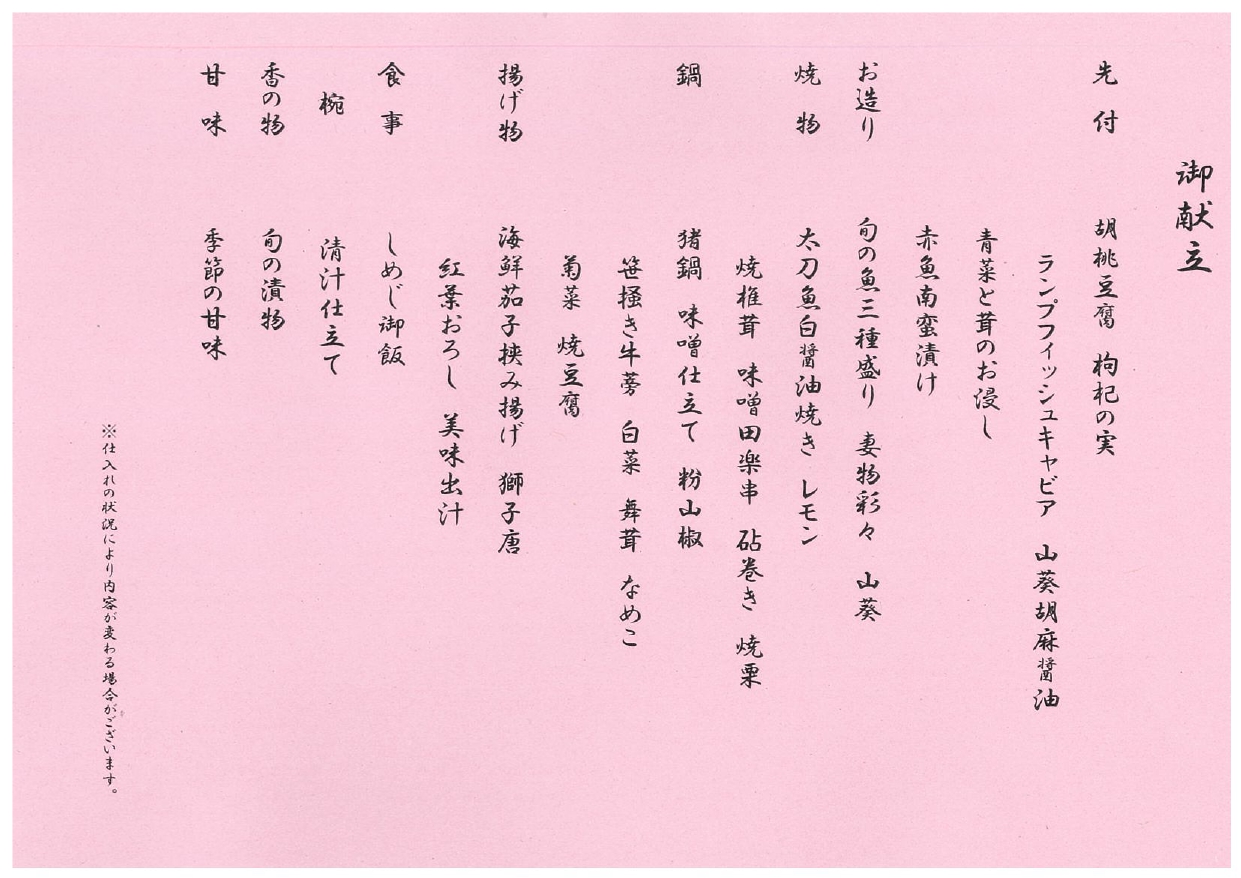 御献立
先付　胡桃豆腐　枸杞の実
ランプフィッシュキャビア　山葵胡麻醤油
青菜と茸のお浸し
赤魚南蛮漬け
お造り　旬の魚三種盛り　妻物彩々　山葵
焼物　太刀魚白醤油焼き　レモン
焼椎茸　味噌田楽串　砧巻き　焼栗
鍋　猪鍋　味噌仕立て　粉山椒
笹掻き牛蒡　白菜　舞茸　なめこ
菊菜　焼豆腐
揚げ物　海鮮茄子挟み揚げ　獅子唐
紅葉おろし　美味出汁
食事　しめじ御飯
椀　清汁仕立て
香の物　旬の漬物
甘味　季節の甘味
※仕入れの状況により内容が変わる場合がございます。